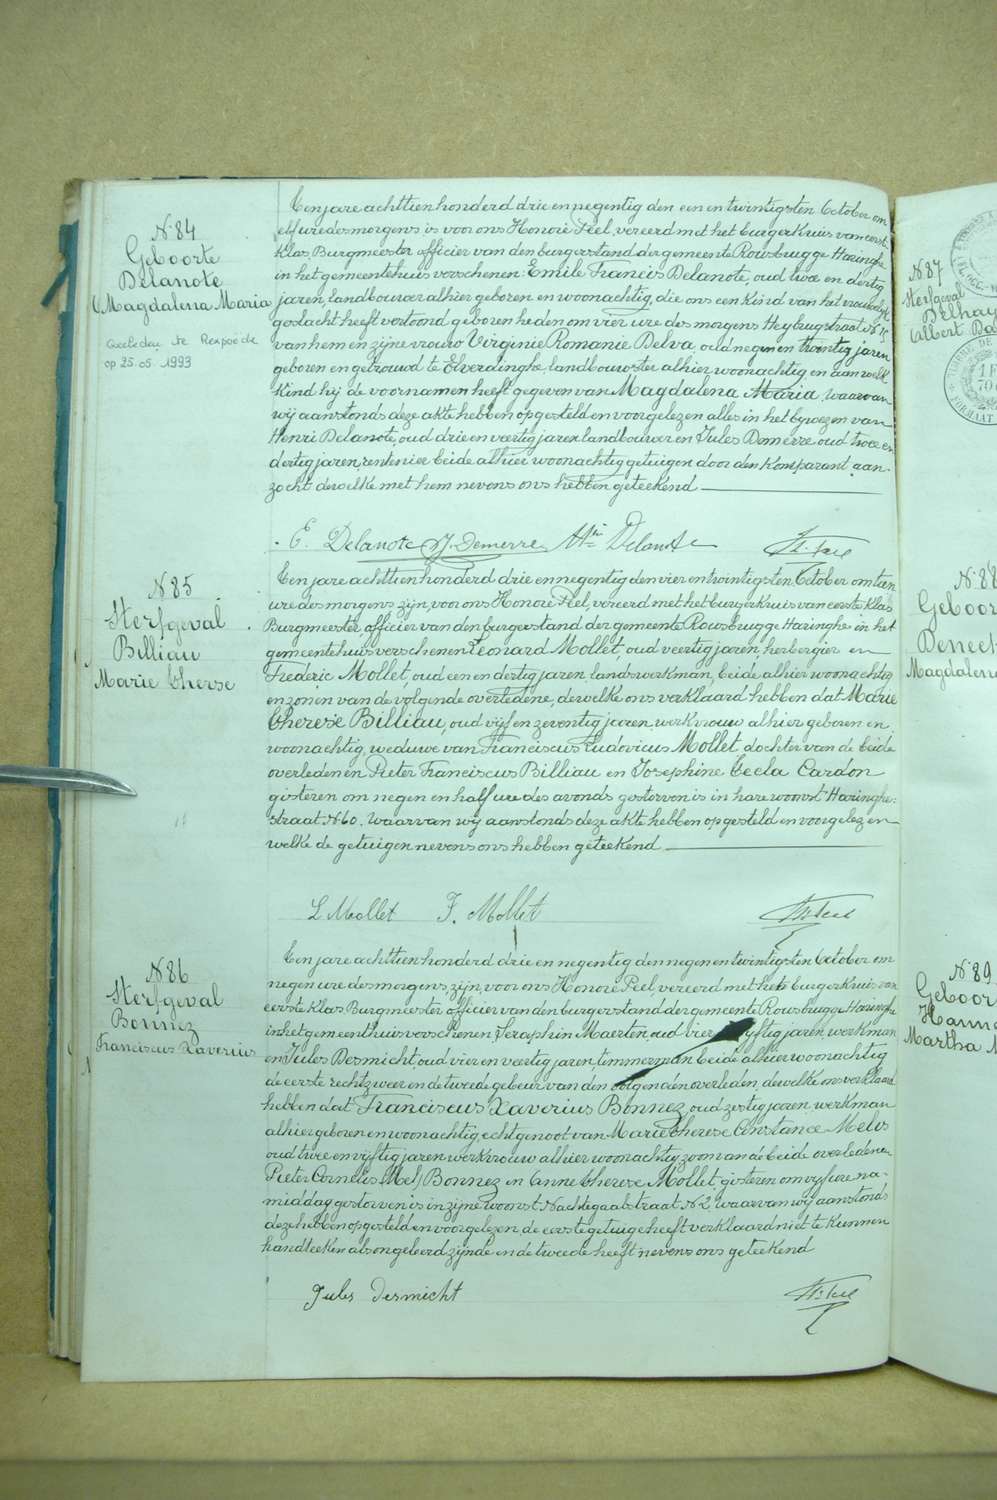 N. 84
Geboorte
Delanote
Magdalena Maria
op 25.05.1993
Een jare achttien honderd drie en negentig den een en twintigsten October om
elf ure des morgens is voor ons Honoré Feel, vereerd met het burger Kruis van eerste
Klas, Burgmeester officier van den burgerstand der gemeente Rousbrugge Haringhe
in het gemeentehuis verschenen Emile Francis Delanote, oud twee en dertig
jaren, landbouwer alhier geboren en woonachtig, die ons een Kind van het vrouwelijk
geslacht heeft vertoond geboren heden om vier ure des morgens Heybrugstraat N. 15
van hem en zijne vrouw Virginie Romanie Delva, oud negen en twintig jaren
geboren en getrouwd te Elverdinghe landbouwster alhier woonachtig en aan welk
Kind hij de voornamen heeft gegeven van Magdalena Maria, waarvan
wij aanstonds deze akte hebben opgesteld en voorgelezen alles in het bijwezen van
Henri Delanote, oud drie en veertig jaren landbouwer en Jules Demerre oud twee en
dertig jaren, rentenier beide alhier woonachtig getuigen door den Komparant aan-
zocht dewelke met hem nevens ons hebben geteekend
E. Delanote J. Demerre Hri Delanote
N. 85
Sterfgeval
Billiau
Marie Therse
Een jare achttien honderd drie en negentig den vier en twintigsten October om tien
ure des morgens zijn, voor ons Honore Feel, vereerd met het burger Kruis van eerste Klas
Burgmeester, officier van den burgerstand der gemeente Rousbrugge Haringhe in het
gemeentehuis verschenen Leonard Mollet, oud veertig jaren, herbergier en
Frederic Mollet, oud een en dertig jaren, landswerkman, beide alhier woonachtig
en zonen van de volgende overledene, dewelke ons verklaard hebben dat Marie
Therese Billiau, oud vijf en zeventig jaren werkvrouw alhier geboren en
woonachtig, weduwe van Franciscus Ludovicus Mollet, dochter van de beide
overledenen Pieter Franciscus Billiau en Josephine Cecla Cardon
gisteren om negen en half ure des avonds gestorven is in hare woonst Haringhe-
straat N. 60. Waarvan wij aanstonds deze akte hebben opgesteld en voorgelezen
welke de getuigen nevens ons hebben geteekend
L Mollet F. Mollet
N. 86
Sterfgeval
Bonnez
Franciscus Xaverius
Een jare achttien honderd drie en negentig den negen en twintigsten October om
negen ure des morgens, zijn, voor ons Honoré Feel, vereerd met het burger Kruis van
eerste Klas Burgmeester officier van den burgerstand der gemeente Rousbrugge Haringhe
in het gemeentehuis verschenen Seraphin Maerten, oud vier vijftig jaren, werkman
en Jules Desmicht, oud vier en veertig jaren, timmerman beide alhier woonachtig
de eerste rechtzweer en de tweede gebeur van den volgenden overleden, dewelke ons verklaard
hebben dat Franciscus Xaverius Bonnez, oud zestig jaren werkman
alhier geboren en woonachtig, echtgenoot van Marie Therese Constance Melis
oud twee en vijftig jaren werkvrouw alhier woonachtig zoon van de beide overledenen
Pieter Cornelis Bonnez en Anne Therese Mollet, gisteren om vijf ure na-
middag gestorven is in zijne woonst Nachtegaalstraat N. 2, waarvan wij aanstonds
deze hebben opgesteld en voorgelezen, de eerste getuige heeft verklaard niet te Kunnen
handteeken als ongeleerd zijnde en de tweede heeft nevens ons geteekend
Jules Desmicht
N. 87
Sterfgeval
Delhay
Albert
1 F
N. 88
Geboor
Magdalena
N. 89
Geboor
Martha